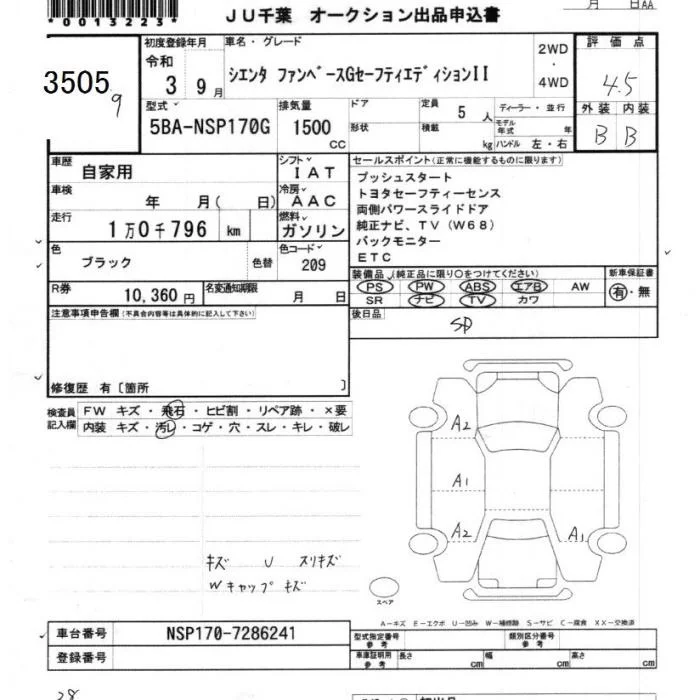 *0013223*
JU千葉 オークション出品申込書
月 日AA
3505
9
初度登録年月
令和
3 9月
車名・グレード
シエンタ ファンベースGセーフティエディションII
2WD
・
4WD
評価点
4.5
外装 内装
B B
型式
5BA-NSP170G
排気量
1500
cc
ドア
形状
定員 5 人
積載 kg
ディーラー・並行
モデル年式 年
ハンドル 左・右
車歴
自家用
シフト
IAT
車検 年 月( 日)
冷房
AAC
走行
1万0千796 km
燃料
ガソリン
色
ブラック
色替
色コード
209
R券
10,360円
名変通知期限
月 日
セールスポイント(正常に機能するものに限ります)
プッシュスタート
トヨタセーフティーセンス
両側パワースライドドア
純正ナビ、TV(W68)
バックモニター
ETC
装備品(純正品に限り○をつけてください)
PS PW ABS エアB AW
SR ナビ TV カワ
新車保証書
有・無
後日品
SD
注意事項申告欄(不具合内容等は具体的に記入して下さい)
修復歴 有〔箇所 〕
検査員記入欄
FW キズ・飛石・ヒビ割・リペア跡・×要
内装 キズ・汚レ・コゲ・穴・スレ・キレ・破レ
A2
A1
A2
A1
キズ U スリキズ
Wキャップ キズ
スペア
A-キズ E-エクボ U-凹み W-補修跡 S-サビ C-腐食 XX-交換済
車台番号
NSP170-7286241
登録番号
型式指定番号
参考
類別区分番号
参考
車庫証明用
参考
長さ cm
幅 cm
高さ cm
28